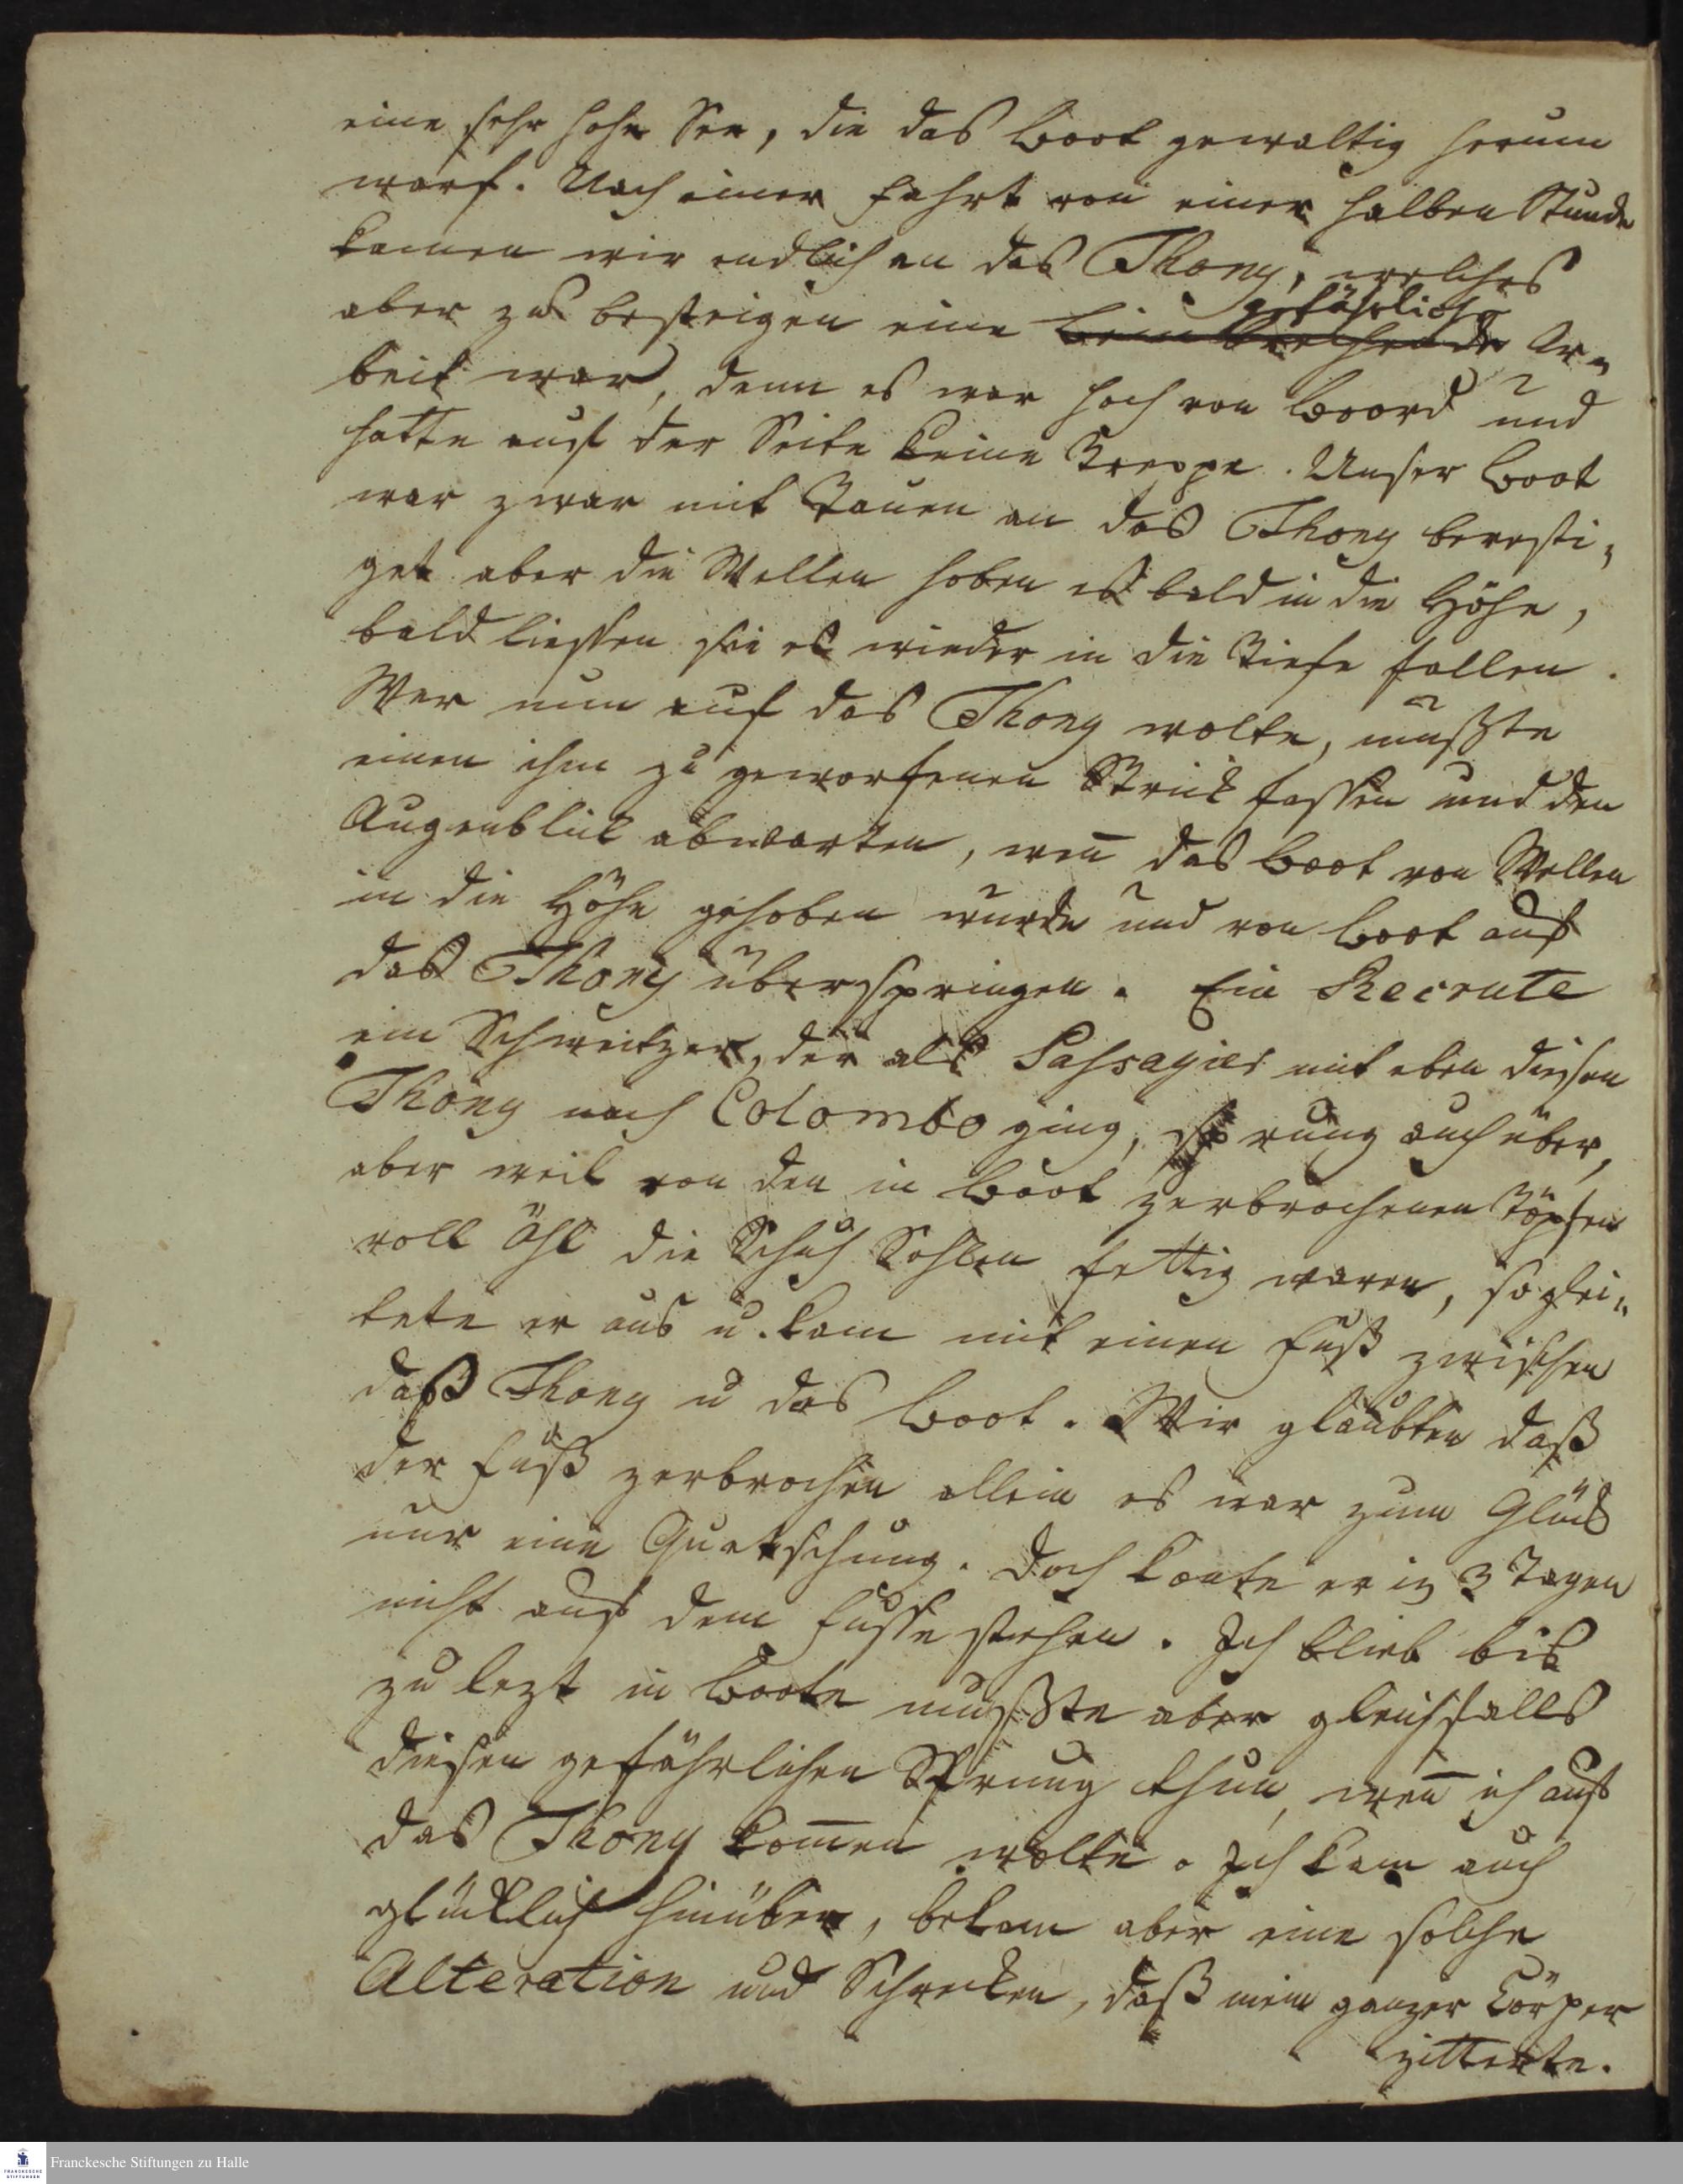 eine sehr hohe See, die das Boot gewaltig herum
warf. Nach einer Fahrt von einer halben Stunde
kamen wir endlich an das Thony, welches
aber zu besteigen eine halsbrechende gefährliche Ar-
beit war, denn es war hoch von Boord und
hatte auf der Seite keine Treppe. Unser Boot
war zwar mit Tauen an das Thony bevesti-
get aber die Wellen hoben es bald in die Höhe,
bald liessen sie es wieder in die Tiefe fallen.
Wer nun auf das Thony wolte, mußte
einen ihm zu geworfenen Strick fassen und den
Augenblick abwarten, weñ das Boot von Wellen
in die Höhe gehoben wurde und von Boot auf
das Thony überspringen. Ein Recrute
ein Schweitzer, der als Passagier mit eben diesen
Thony nach Colombo ging, sprung auch über,
aber weil von den in Boot zerbrochenen Töpfen
voll Öhl die Schuh Sohlen fettig waren, so glei-
tete er aus u. kam mit einen Fuß zwischen
daß Thony u das Boot. Wir glaubten daß
der Fuß zerbrochen allein es war zum Glück
nur eine Quetschung. Doch konte er in 3 Tagen
nicht auf dem Fusse stehen. Ich blieb bis
zu lezt in Boote mußte aber gleichfalls
diesen gefährlichen Sprung thun, weñ ich auf
das Thony kom̃en wolte. Ich kam auch
glücklich hinüber, bekam aber eine solche
Alteration und Schrecken, daß mein ganzer Cörper
zitterte.
Franckesche Stiftungen zu Halle